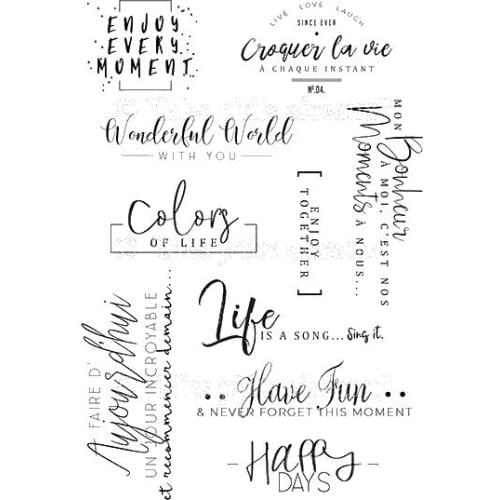 ENJOY
EVERY
MOMENT
LIVE . LOVE . LAUGH
SINCE EVER
Croquer la vie
À CHAQUE INSTANT
Nº.04.
Wonderful World
WITH YOU
MON
Bonheur
À MOI, C'EST NOS
Moments
À NOUS...
[ ENJOY
TOGETHER ]
Colors
OF LIFE
A FAIRE D'
Aujourd'hui
UN JOUR INCROYABLE
et recommencer demain...
Life
IS A SONG... Sing it.
Have Fun
& NEVER FORGET THIS MOMENT
HAPPY
DAYS